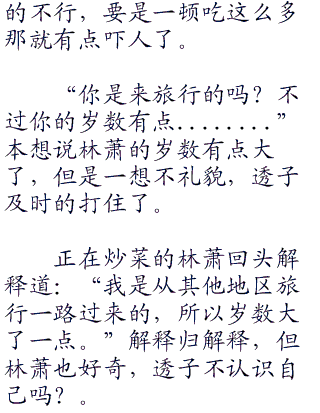 的不行，要是一顿吃这么多
那就有点吓人了。
“你是来旅行的吗？不
过你的岁数有点........”
本想说林萧的岁数有点大
了，但是一想不礼貌，透子
及时的打住了。
正在炒菜的林萧回头解
释道：“我是从其他地区旅
行一路过来的，所以岁数大
了一点。”解释归解释，但
林萧也好奇，透子不认识自
己吗？。